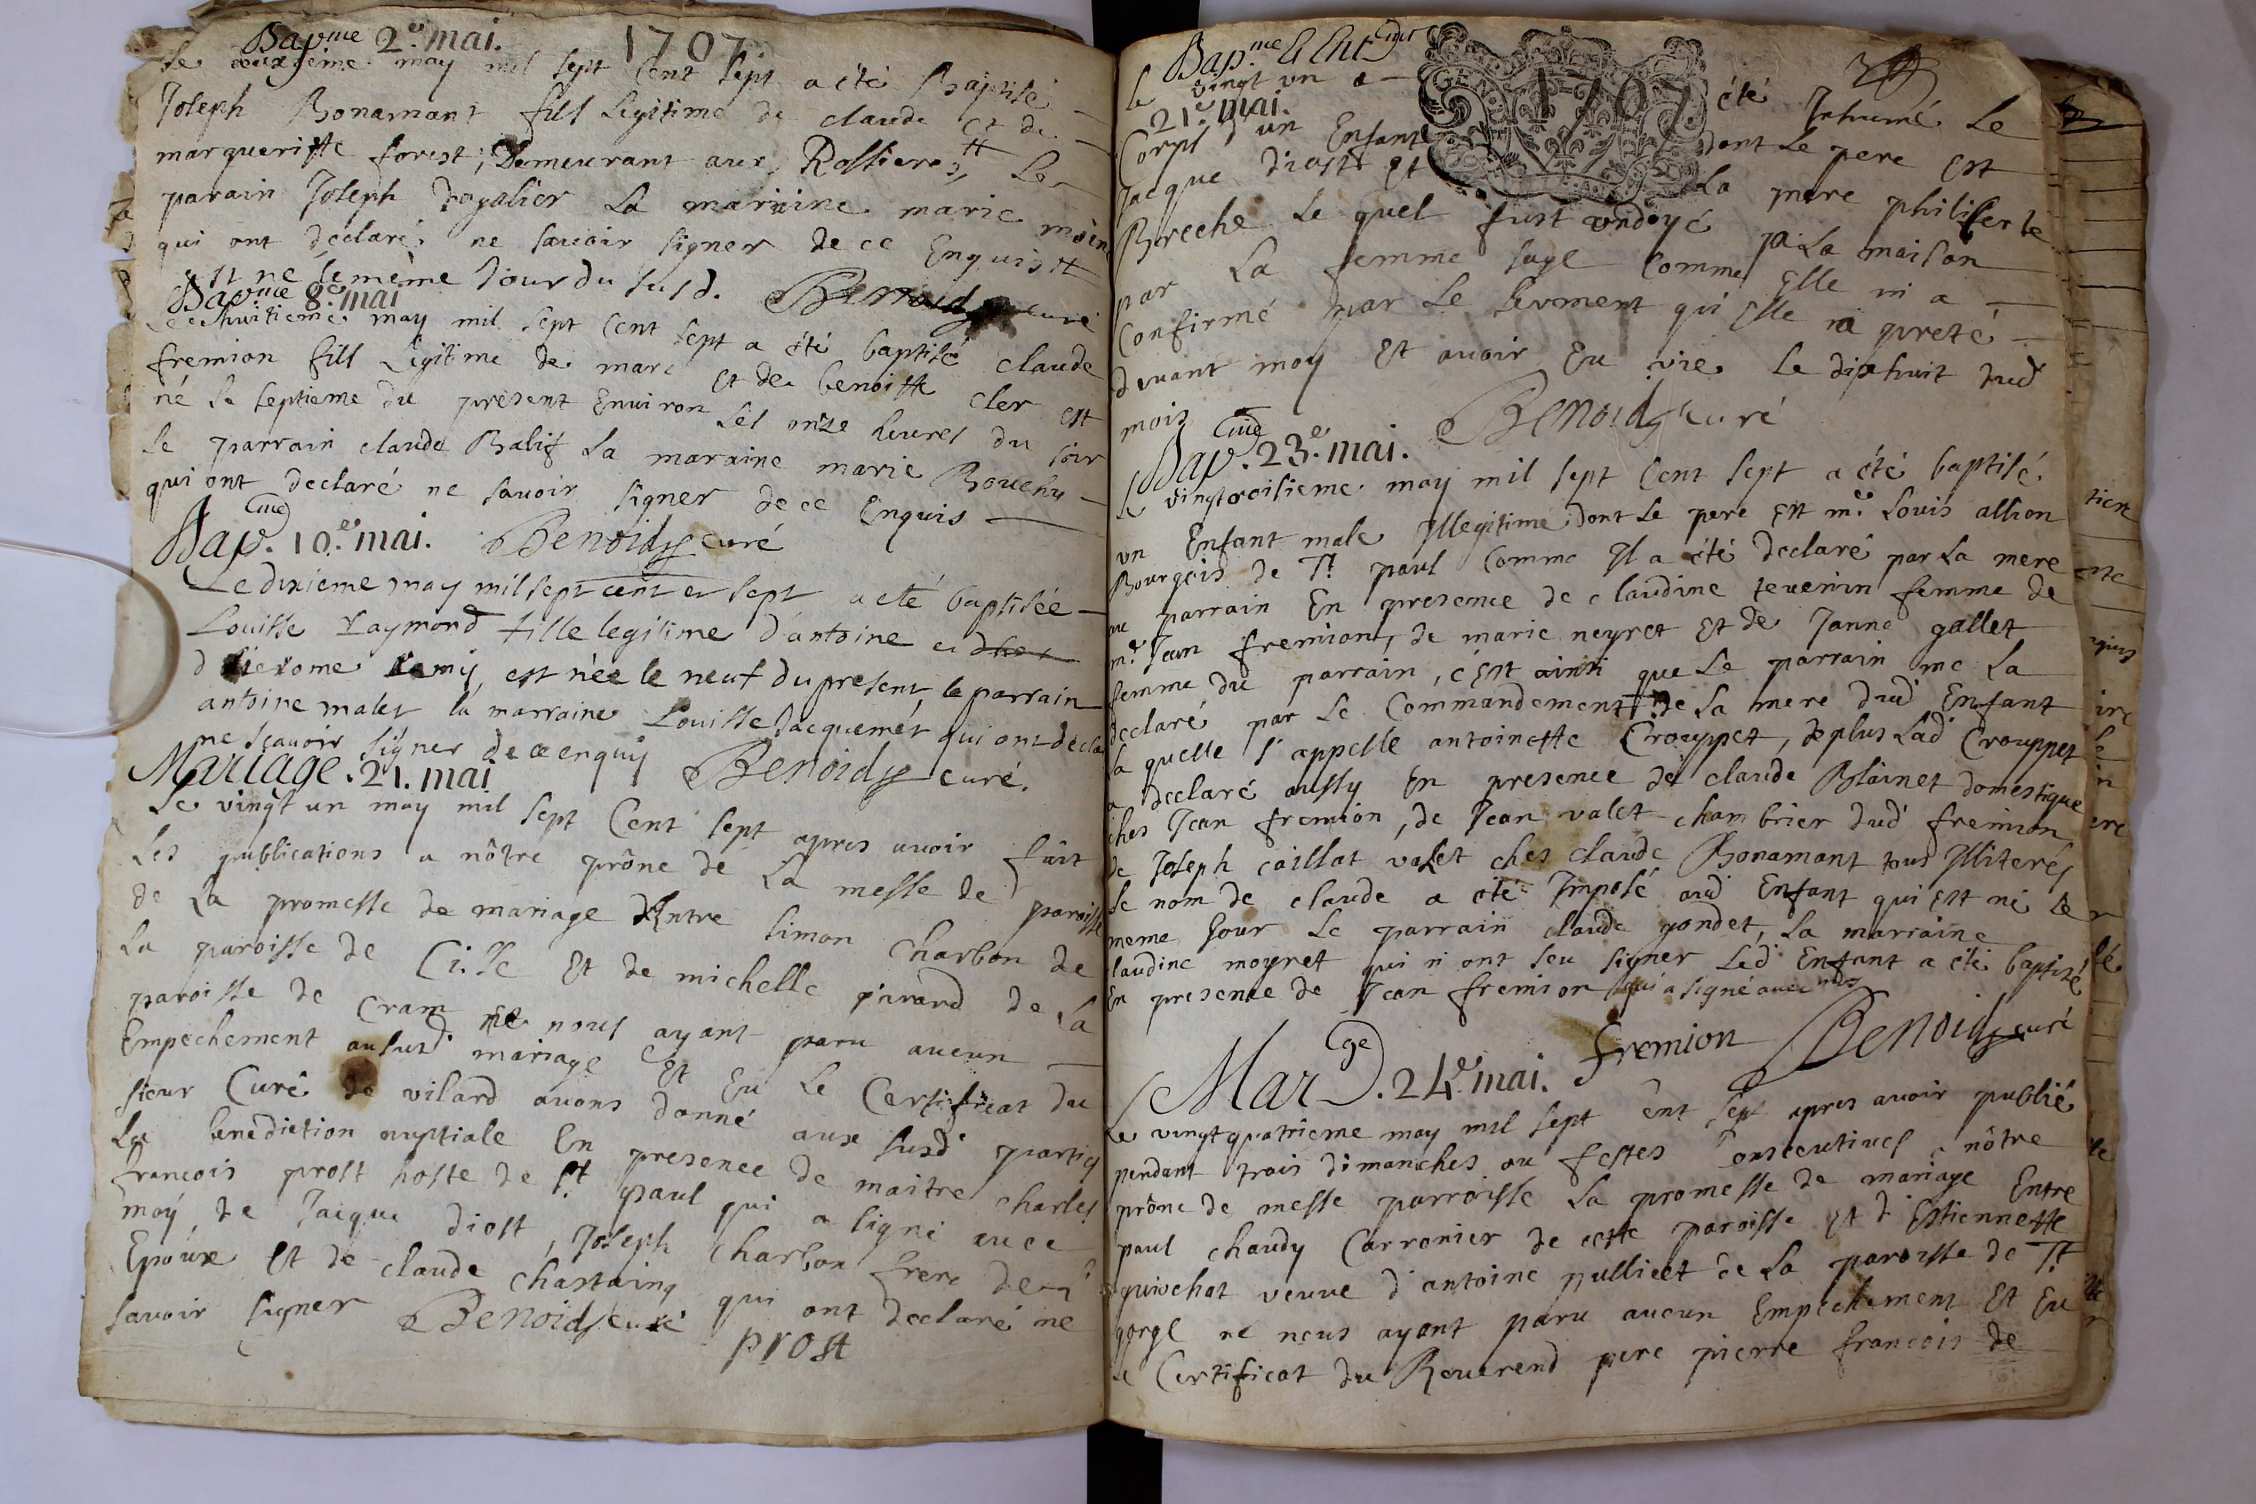 Bap.me 2.e mai. 1707
Le deuxieme may mil sept Cent sept a été Baptisé
Joseph Bonamant fils Legitime de claude Et de
margueritte forest, Demeurant aux Rossieres, Le
parain Joseph dogalier La maraine marie
qui ont déclaré ne sauoir signer de ce Enquis
Est ne le même Jour du susd. Benoid curé
Bap.me 8.e mai
Le huitieme may mil sept Cent sept a été baptisé claude
fremion fils Legitime de marc Et de benoitte cler Est
né Le septieme du present Environ Les onze heures du soir
Le parrain claude Balif La maraine marie Bouchy
qui ont declaré ne sauoir signer de ce Enquis
Bap.me 10.e mai. Benoid curé
Le dixieme may mil sept cent et sept a eté baptisée
Louisse Raymond fille legitime d'antoine et
d est née le neuf du present, le parrain
antoine malet la marraine Louisse Jacquemet qui ont decla
ne scauoir signer de ce enquis Benoid curé.
Mariage. 21. mai
Le vingt un may mil sept Cent sept apres auoir fait
Les publications a nôtre prône de La messe de paroisse
de La promesse de mariage dEntre simon Charbon de
La paroisse de Cise Et de michelle pinard de La
paroisse de Cram ne nous ayant paru aucun
Empechement aususd. mariage Et Eu Le Certificat du
sieur Curé de vilard auons donné aux susd. parties
La benediction nuptiale En presence de maitre charles
francois prost hoste de st paul qui a signé auec
moy, de Jacque diost, Joseph Charbon frere de
Epoux Et de claude chastaing qui ont declaré ne
sauoir signer Benoid curé
prost
Bap.me Et Ent
le vingt un a 1707 été Inhumé Le
21.e mai.
Corps d'un Enfant dont Le pere Est
Jacque diost Et La mere philiberte
Breche Le quel fust ondoyé a La maison
par La femme sage Comme Elle m a
Confirmé par Le serment qu Elle a preté
deuant moy Et auoir Eu vie Le dixhuit dud
mois Benoid curé
Bap.me 23.e mai.
Le vingtroisieme may mil sept Cent sept a été baptisé
un Enfant male Illegitime dont Le pere Est m.e Louis allion
Bourgois de st paul Comme Il a été declaré par La mere
au parrain En presence de claudine tevenin femme de
m.e Jean fremion, de marie neyret Et de Janne gallet
femme du parrain, c'Est ainsi que Le parrain me La
declaré par Le Commandement de La mere dud Enfant
La quelle s'appelle antoinette Crouppet, de plus Lad Crouppet
a declaré aussy En presence de claude Blainet domestique
ches Jean fremion, de Jean valet chambrier dud fremion
de Joseph caillat valet ches claude Bonamant tous Illiterés
Le nom de claude a été Imposé aud Enfant qui Est né Le
meme Jour Le parrain claude gondet, La marraine
claudine moyret qui n ont seu signer Led Enfant a été baptisé
En presence de Jean fremion qui a signé auec nous
fremion Benoid curé
Mar.ge. 24.e mai.
Le vingtquatrieme may mil sept Cent sept apres auoir publié
pendant trois dimanches ou festes Consecutives a nôtre
prône de messe parroisse La promesse de mariage Entre
paul chaudy Carronier de cette paroisse Et d'Estiennette
quivchat veuue d'antoine pulliet de La paroisse de st
gorge ne nous ayant paru aucun Empechement Et Eu
Le Certificat du Reuerend pere pierre francois de